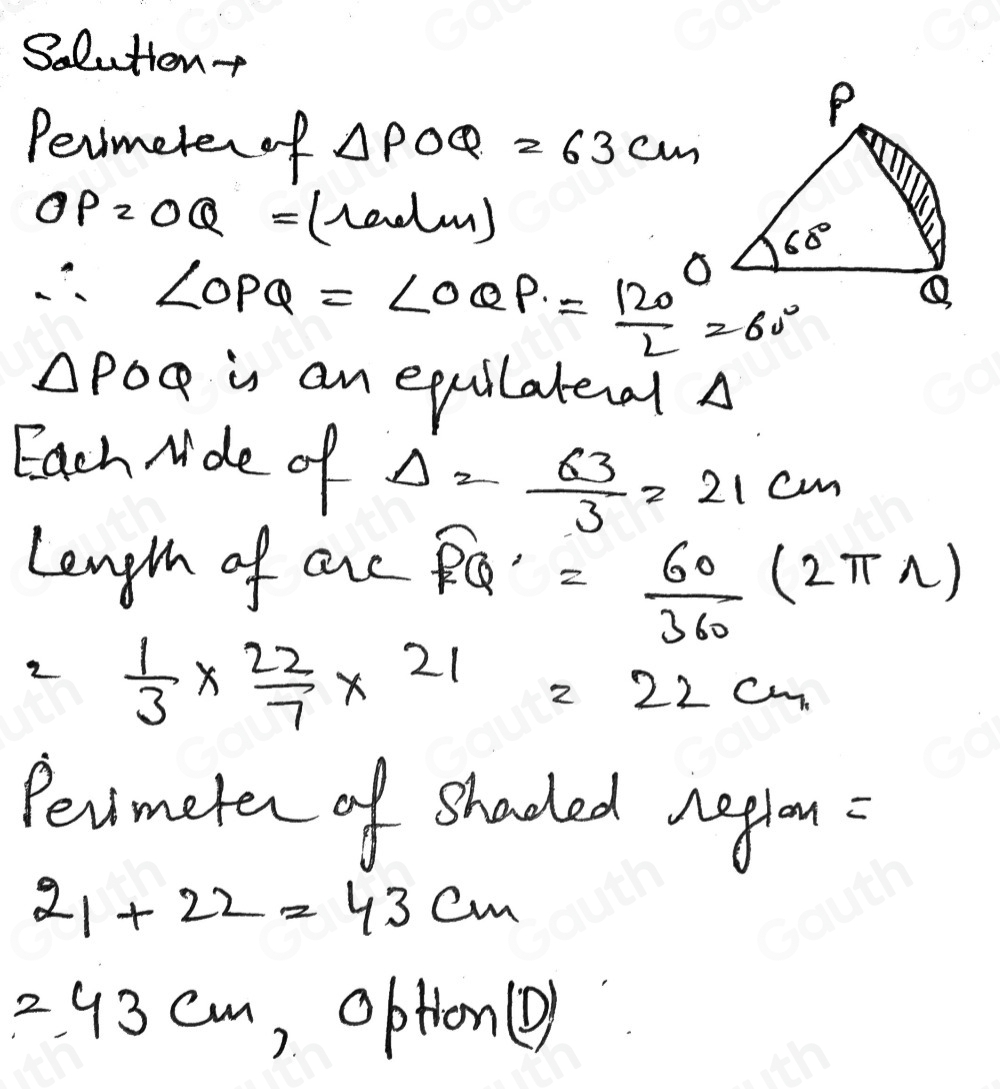 Solution →
P
Perimeter of ΔPOQ = 63 cm
OP = OQ = (radius)
60°
O
Q
∴ ∠OPQ = ∠OQP. = 120/2 = 60°
ΔPOQ is an equilateral Δ
Each side of Δ = 63/3 = 21 cm
Length of arc PQ = 60/360 (2πr)
= 1/3 × 22/7 × 21 = 22 cm.
Perimeter of shaded region =
21 + 22 = 43 cm
= 43 cm, Option (D)
Gauth